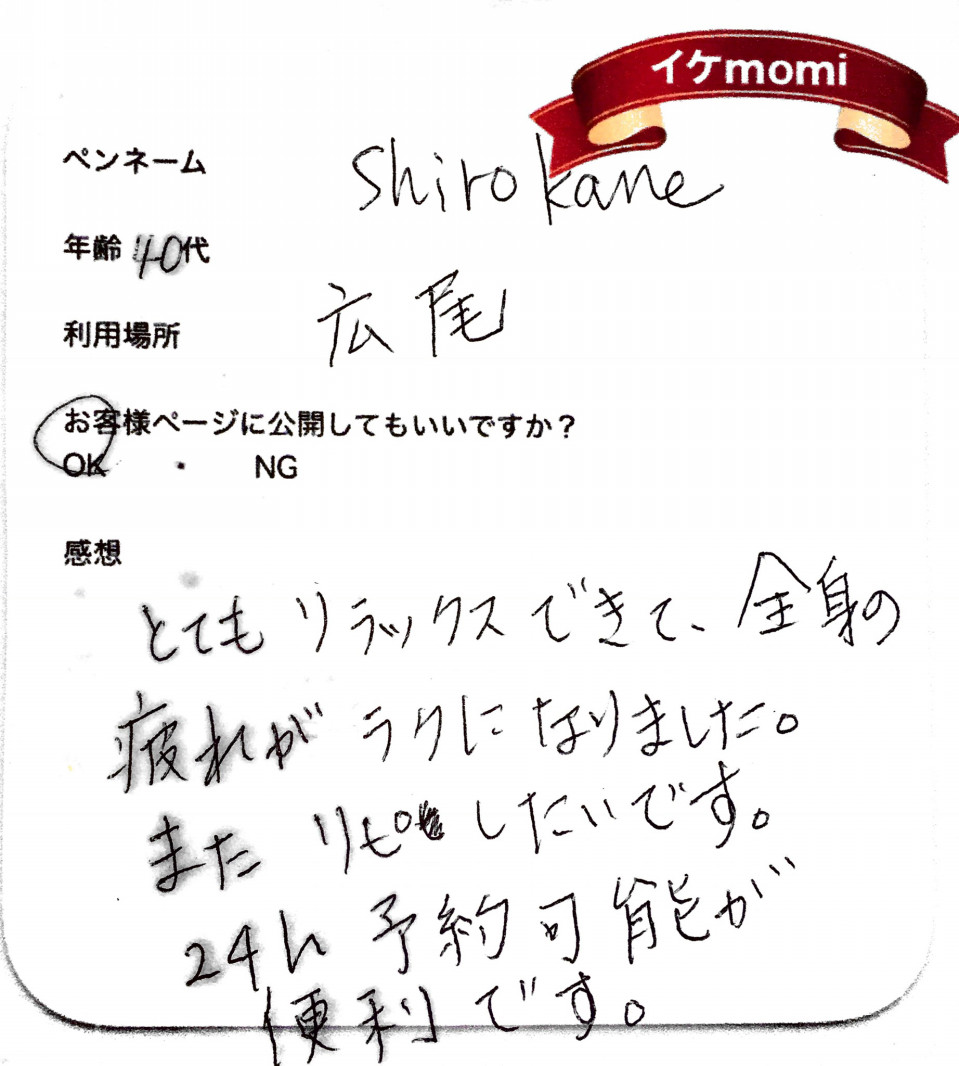 イケmomi
ペンネーム shirokane
年齢 40代
利用場所 広尾
お客様ページに公開してもいいですか？
OK ・ NG
感想
とても リラックスできて、全身の
疲れが ラクに なりました。
また リピ したいです。
24h 予約可能が
便利です。